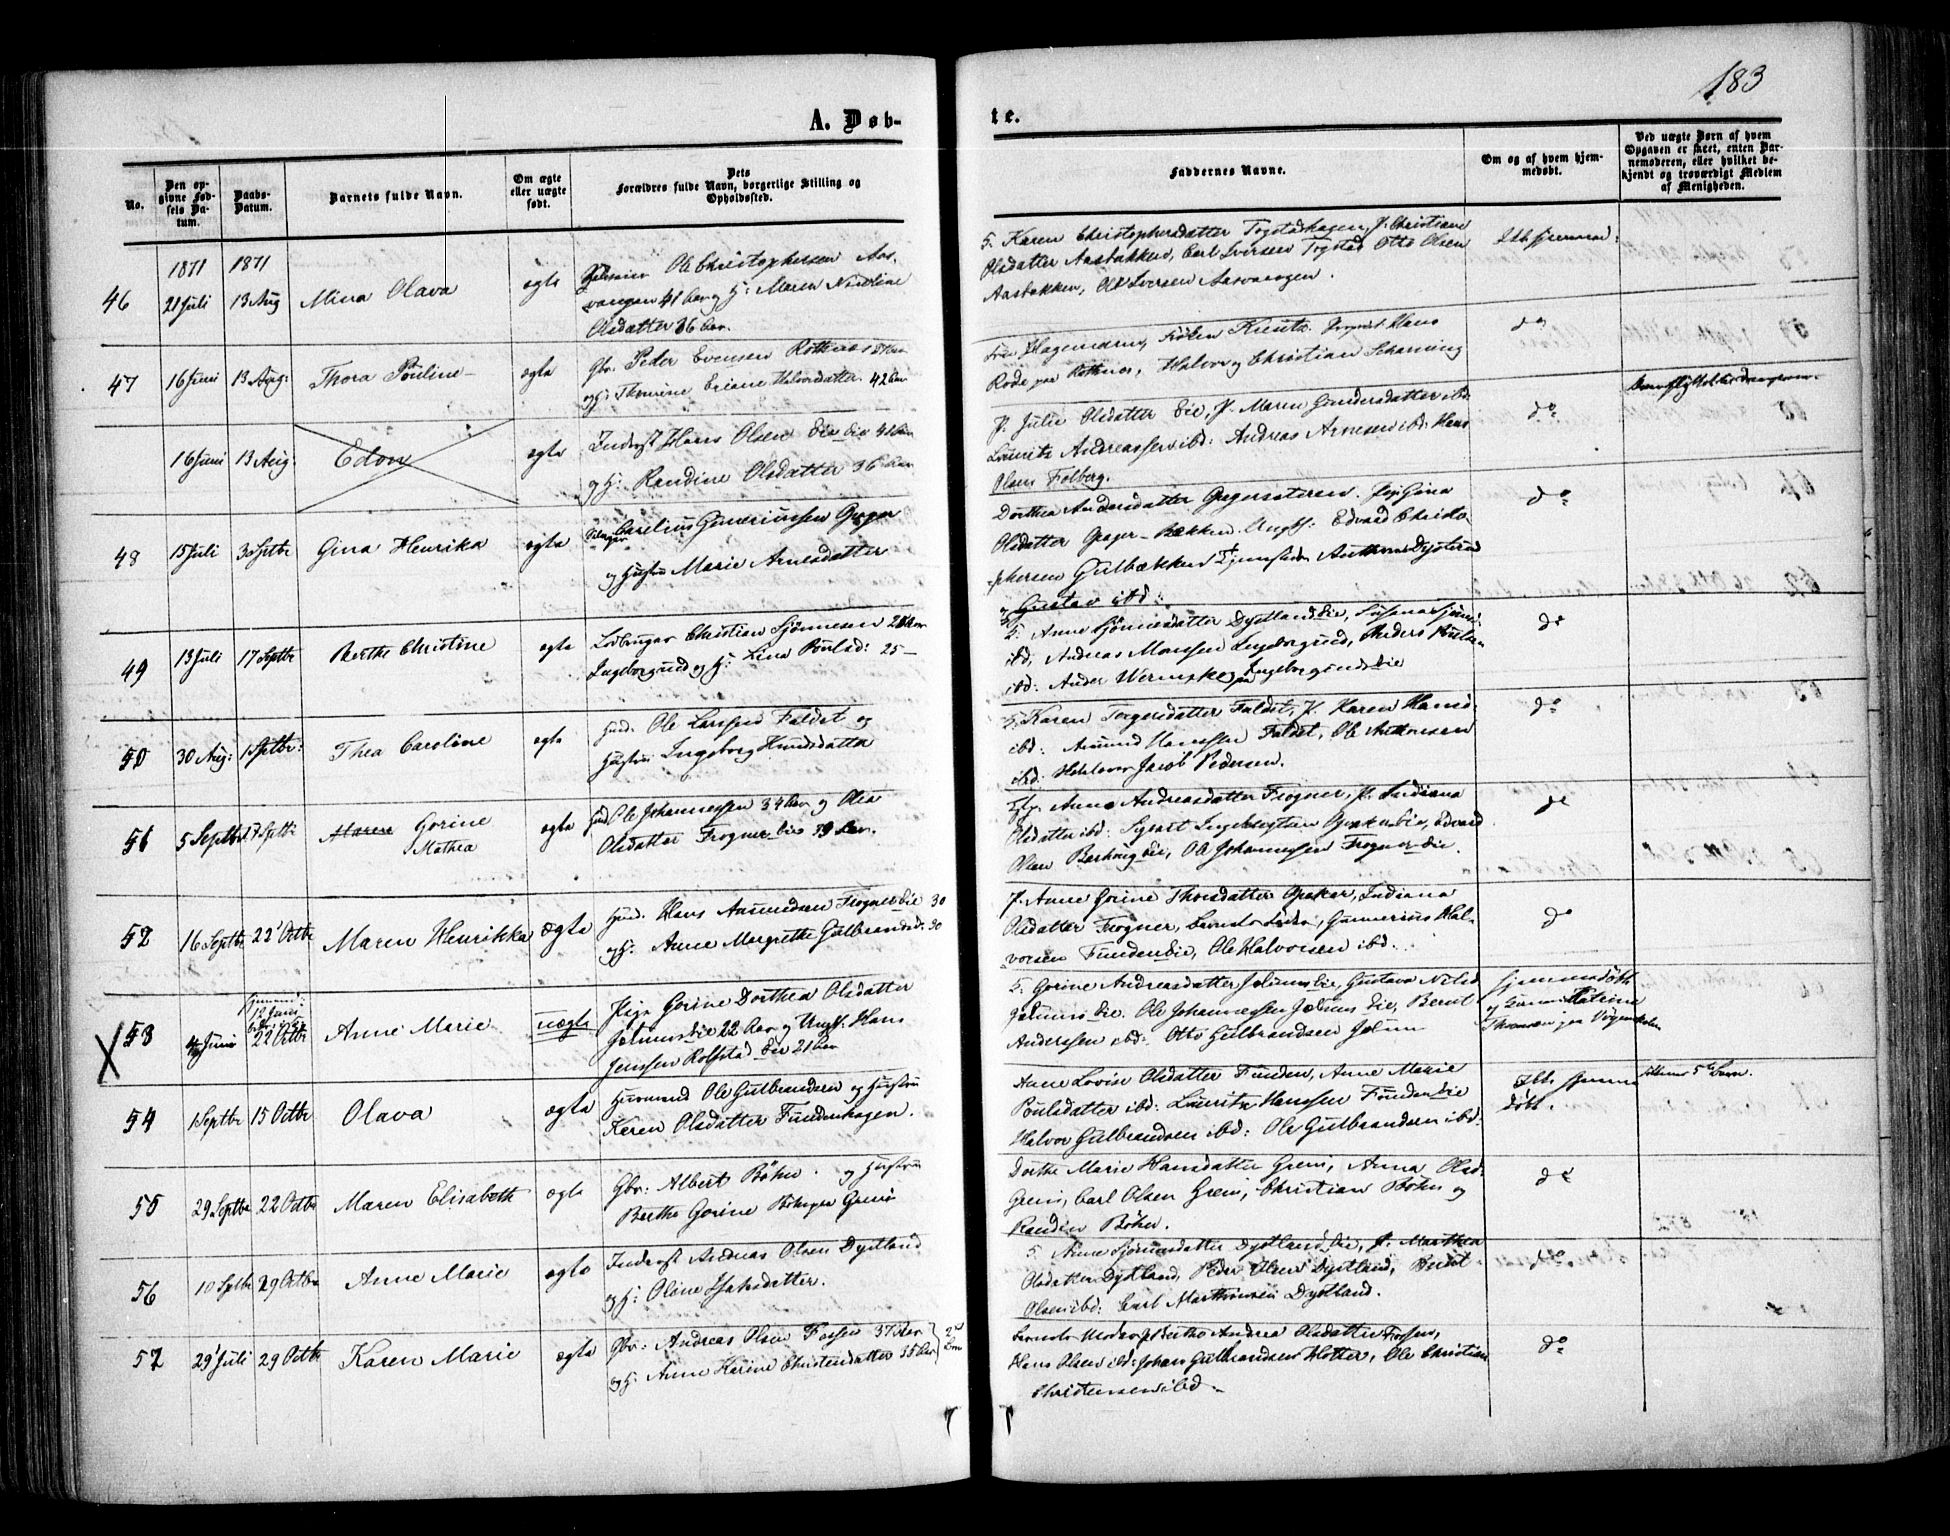 183
A. Døb-
te.
No.
Den op-
givne Fød-
sels Da-
tum.
Daabs-
Datum.
Barnets fulde Navn.
Om ægte
eller uægte
født.
Dets
Forældres fulde Navn, borgerlige Stilling og
Opholdssted.
Faddernes Navne.
Om og af hvem hjem-
medøbt.
Ved uægte Børn af hvem
Opgaven er skeet, enten Bar-
nemoderen, eller hvilket be-
kjendt og troværdigt Medlem
af Menigheden.
1871 1871
46 21 Juli 13 Aug Mina Olava ægte
Ole Christophersen Aas-
vangen 41 Aar og H: Maren Nicoline
Olsdatter 36 Aar.
5. Karen Christophersdatter Togstadhagen, P. Christiane
Olsdatter Aasbakken, Carl Iversen Togstad Otto Olsen
Aasbakken, Ole Iversen Aasvangen.
47 16 Juni 13 Aug: Thora Pouline ægte
Gbr. Peder Evensen Rothnes
og H: Thomine Eriene Halvorsdatter 42 Aar
Fru Hagemann, Frøken Hans
Rode paa Rothnes, Halvor og Christian Scharning
do
16 Juni 13 Aug. Edon ægte
Inderst Hans Olsen Eie 41 Aar
og H: Randine Olsdatter 36 Aar
P. Julie Olsdatter Eie, P. Maren Gundersdatter ibd:
Lauritz Andreassen ibd: Andreas Arnesen ibd: Hans
Olsen Folberg.
do
48 15 Juli 3 Septbr Gina Henrika ægte
Carelius Gunerussen Gager
og Hustru Marie Arnesdatter
Dorthea Andersdatter Gagersæteren. Pige Gina
Olsdatter Gager-Bækken. Ungk: Edvard Christo-
phersen Gulbækken, Anthon Dysterud
og Gustav ibd:
do
49 13 Juli 17 Septbr Berthe Christine ægte
Christian Sjønnesen 28 Aar
Ingeborgsund og H: Lina Poulsd: 25 —
5. Anne Sjønnesdatter Dystland Eie,
ibd, Andreas Monsen Ingeborgsund, Anders
ibd: Ander Wermske paa Ingeborgsundseie
do
50 30 Aug: 1 Septbr: Thea Caroline ægte
Husd. Ole Larssen Faldet og
Hustru Ingeborg Knudsdatter
H. Karen Torgersdatter Faldet, P. Karen Hansd:
ibd: Amund Hanssen Faldet, Ole Anthonsen
ibd: Jacob Pedersen.
do
51 5 Septbr 17 Septbr Maren Gorine
Mathea
ægte
Husd Ole Johannessen 34 Aar og Olea
Olsdatter Frogner Eie 39 Aar.
Anne Andreasdatter Frogner, P. Indiana
Olsdatter ibd: Gaarderseie, Edvard
Olsen Eie, Ole Johannessen Frogner Eie.
do
52 16 Septbr 22 Octbr Maren Henrikka ægte
Husd. Hans Amundsen Frogner Eie 30
og H: Anne Margrethe Gulbrandsd. 30
P. Anne Gorine Thorsdatter Indiana
Olsdatter Frogner, Gunnerius Hal-
vorsen Funden Eie, Ole Halvorsen ibd.
do
X 53 4 Juni 12 Juni
22 Octbr
Anne Marie uægte
Pige Gorine Dorthea Olsdatter
Jølmus Eie 22 Aar og Ungk: Hans
Jenssen Rolfstad Eie 21 Aar
5. Gorine Andreasdatter Jølmus Eie, Gustava Nilsd
Jølmus Eie. Ole Johannessen Jølmus Eie, Bernt
Anderssen ibd: Otto Gulbrandsen Jølmus
Hjemmedøbt
Katrine
Thomsen
54 1 Septbr 15 Octbr Olava ægte
Husmand Ole Gulbrandsen og Hustru
Karen Olsdatter Fundenhagen.
Anne Lovise Olsdatter Funden, Anne Marie
Poulsdatter ibd: Lauritz Hanssen Funden Eie
Halvor Gulbrandsen ibd: Ole Gulbrandsen ibd.
Ikke hjemme
døbt.
5te Barn.
55 29 Septbr 22 Octbr Maren Elisabeth ægte
Gbr: Albert Bøhn. og Hustru
Berthe Gorine
Dorthe Marie Hansdatter Greni, Anna Olsd:
Greni, Carl Olsen Greni, Christian Bøhn og
Randin Bøhn.
do
56 10 Septbr 29 Octbr Anne Marie ægte
Inderst Andreas Olsen Dystland
og H: Oline Isaksdatter.
5. Anne Sjønnesdatter Dystland Eie, P. Marthea
Olsdatter Dystland, Peder Olsen Dystland, Bernt
Olsen ibd: Carl Marthinsen Dystland.
do
57 29 Juli 29 Octbr Karen Marie ægte
Gbr: Andreas Olsen Fossen 37 Aar
og H: Anne Karine Christensdatter 35 Aar
2det
Barn
Barnets Moder, Andrea Olsdatter Fossen,
Hans Olsen ibd: Johan Gulbrandsen Hotter, Ole Christian
Christensen ibd.
do